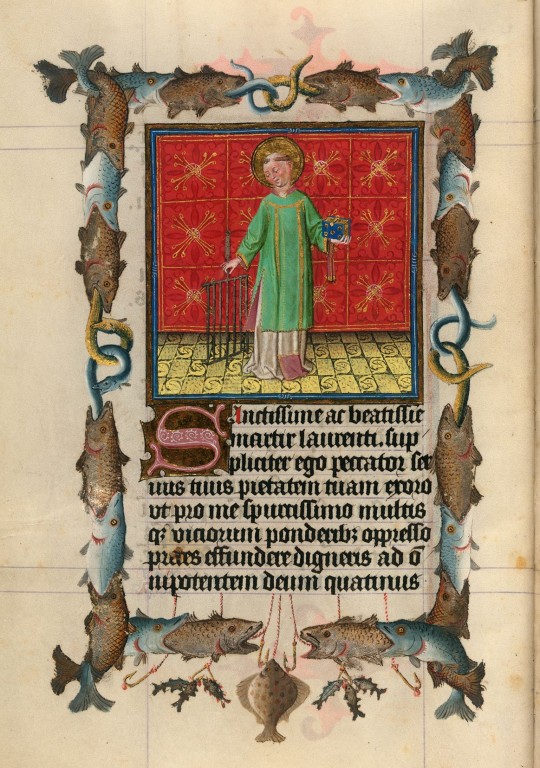 Sanctissime ac beatissie
martir laurenti. sup
pliciter ego peccator ser
uus tuus pietatem tuam exoro
vt pro me spurcissimo multis
qz viciorum ponderibz oppresso
preces effundere digneris ad o̅
nipotentem deum quatinus